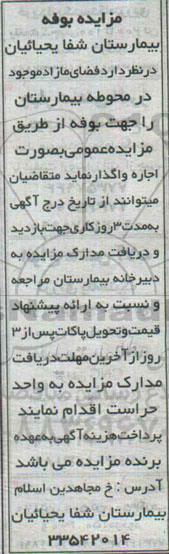 مزایده بوفه
بیمارستان شفا یحیائیان
درنظر دارد فضای مازاد موجود
در محوطه بیمارستان
را جهت بوفه از طریق
مزایده عمومی بصورت
اجاره واگذار نماید متقاضیان
میتوانند از تاریخ درج آگهی
به مدت ۳ روز کاری جهت بازدید
و دریافت مدارک مزایده به
دبیرخانه بیمارستان مراجعه
و نسبت به ارائه پیشنهاد
قیمت و تحویل پاکات پس از ۳
روز از آخرین مهلت دریافت
مدارک مزایده به واحد
حراست اقدام نمایند
پرداخت هزینه آگهی به عهده
برنده مزایده می باشد
آدرس : خ مجاهدین اسلام
بیمارستان شفا یحیائیان
۳۳۵۴۲۰۱۴